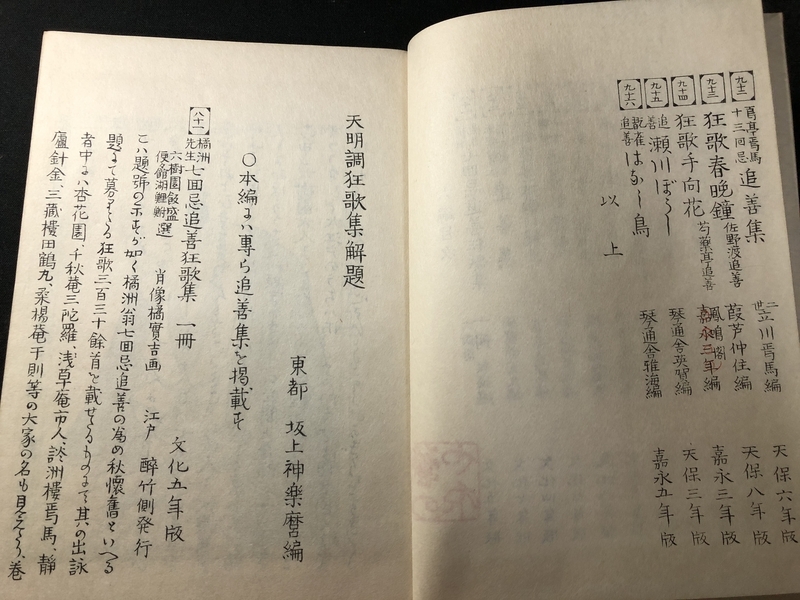 九十二 百亭焉馬十三回忌 追善集 二世立川焉馬編 天保六年版
九十三 狂歌春晩鐘 佐野渡追善 葭芦仲住編 天保八年版
九十四 狂歌手向花 芍薬亭追善 嘉永三年編 嘉永三年版
九十五 追善 瀬川ぼうし 琴通舎英賀編 天保三年版
九十六 追善 はなし鳥 琴通舎雅海編 嘉永五年版
以上
天明調狂歌集解題
東都 坂上神楽麿編
〇本編には専ら追善集を掲載す
八十一 橘洲先生七回忌追善狂歌集 一冊 文化五年版
六樹園飯盛 便々館湖鯉鮒 選 肖像橘實吉画 江戸 酔竹側発行
こは題號の示すが如く橘洲翁七回忌追善の為め秋懐舊といへる
題にて募りたる狂歌三百三十餘首を載せたるものにて其の出詠
者中には杏花園、千秋菴三陀羅、浅草庵市人、談洲樓焉馬、静
廬針金、三蔵樓田鶴丸、桑楊菴干則等の大家の名も見えたり、巻